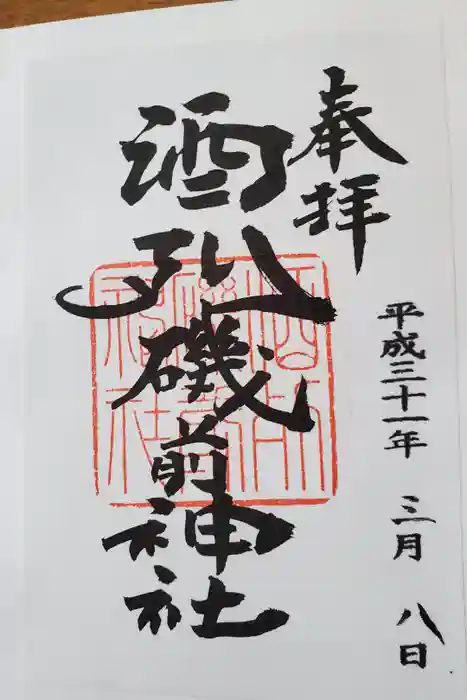 奉拝
平成三十一年 三月 八日
酒列磯前神社